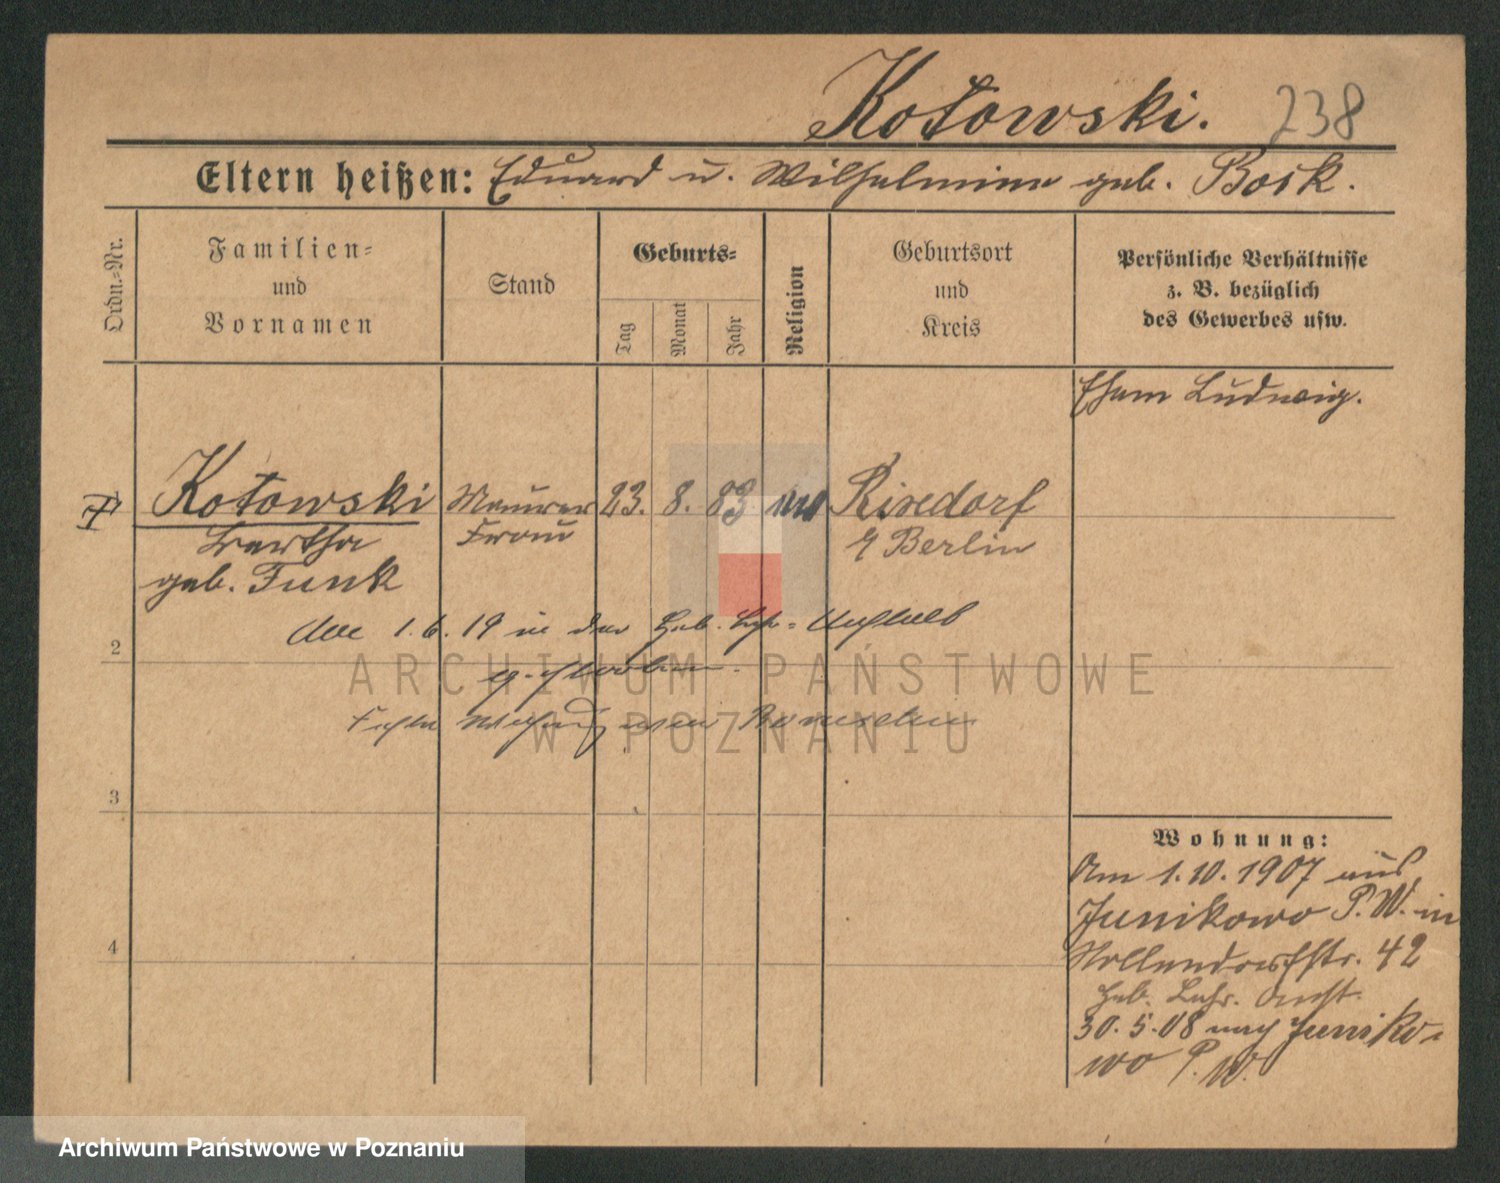 Kotowski. 238
Eltern heißen: Eduard u. Wilhelmine geb. Bock.
Ordn.-Nr.
Familien-
und
Vornamen
Stand
Geburts-
Tag
Monat
Jahr
Religion
Geburtsort
und
Kreis
Persönliche Verhältnisse
z. B. bezüglich
des Gewerbes usw.
Ehem Ludwig.
Kotowski Maurer 23. 8. 83 Rixdorf
Bertha Frau Berlin
geb. Funk
Am 1.6.19 in der Heb. Lehr-Anstalt
gestorben.
2
ARCHIWUM PAŃSTWOWE
W POZNANIU
3
Wohnung:
Am 1.10.1907 aus
Junikowo P. W. in
42
Heb. Lehr. Anst.
30.5.08 nach Juniko-
wo P. W.
4
Archiwum Państwowe w Poznaniu